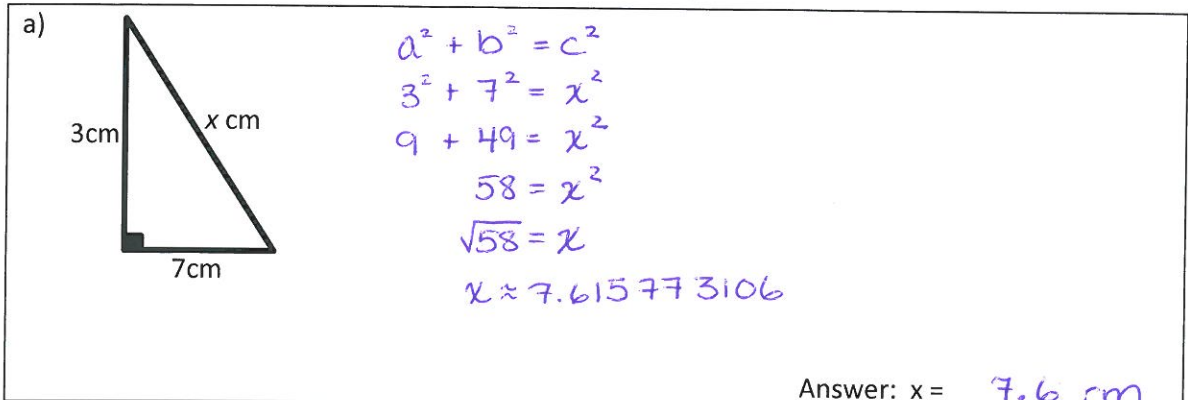 a)
3cm
x cm
7cm
a² + b² = c²
3² + 7² = x²
9 + 49 = x²
58 = x²
√58 = x
x ≈ 7.615773106
Answer: x = 7.6 cm